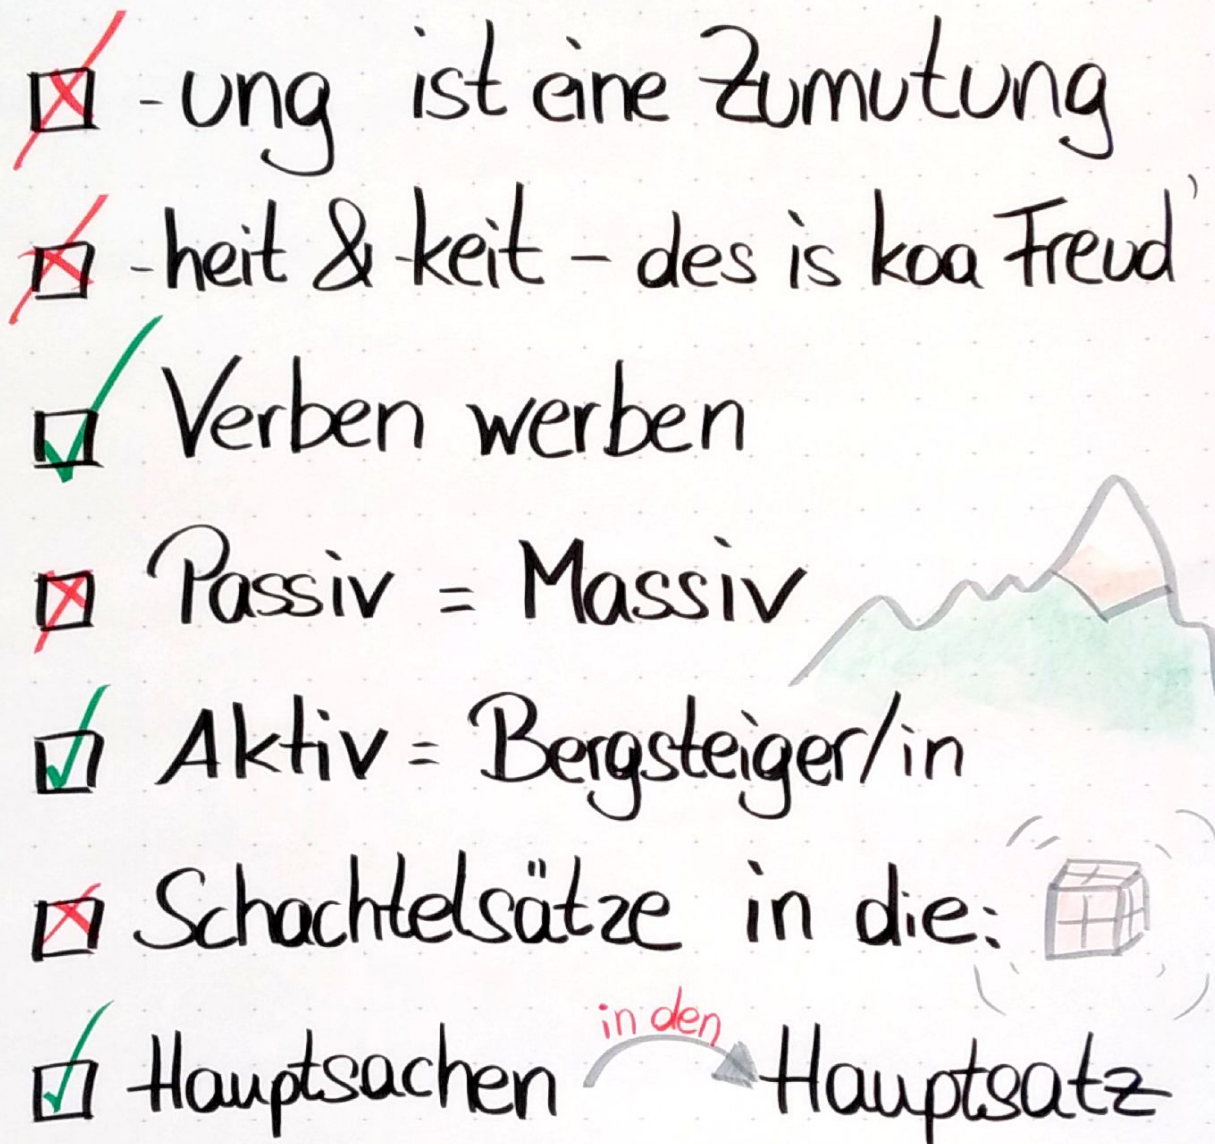 -ung ist eine Zumutung
-heit & -keit - des is koa Freud'
Verben werben
Passiv = Massiv
Aktiv = Bergsteiger/in
Schachtelsätze in die:
Hauptsachen in den Hauptsatz